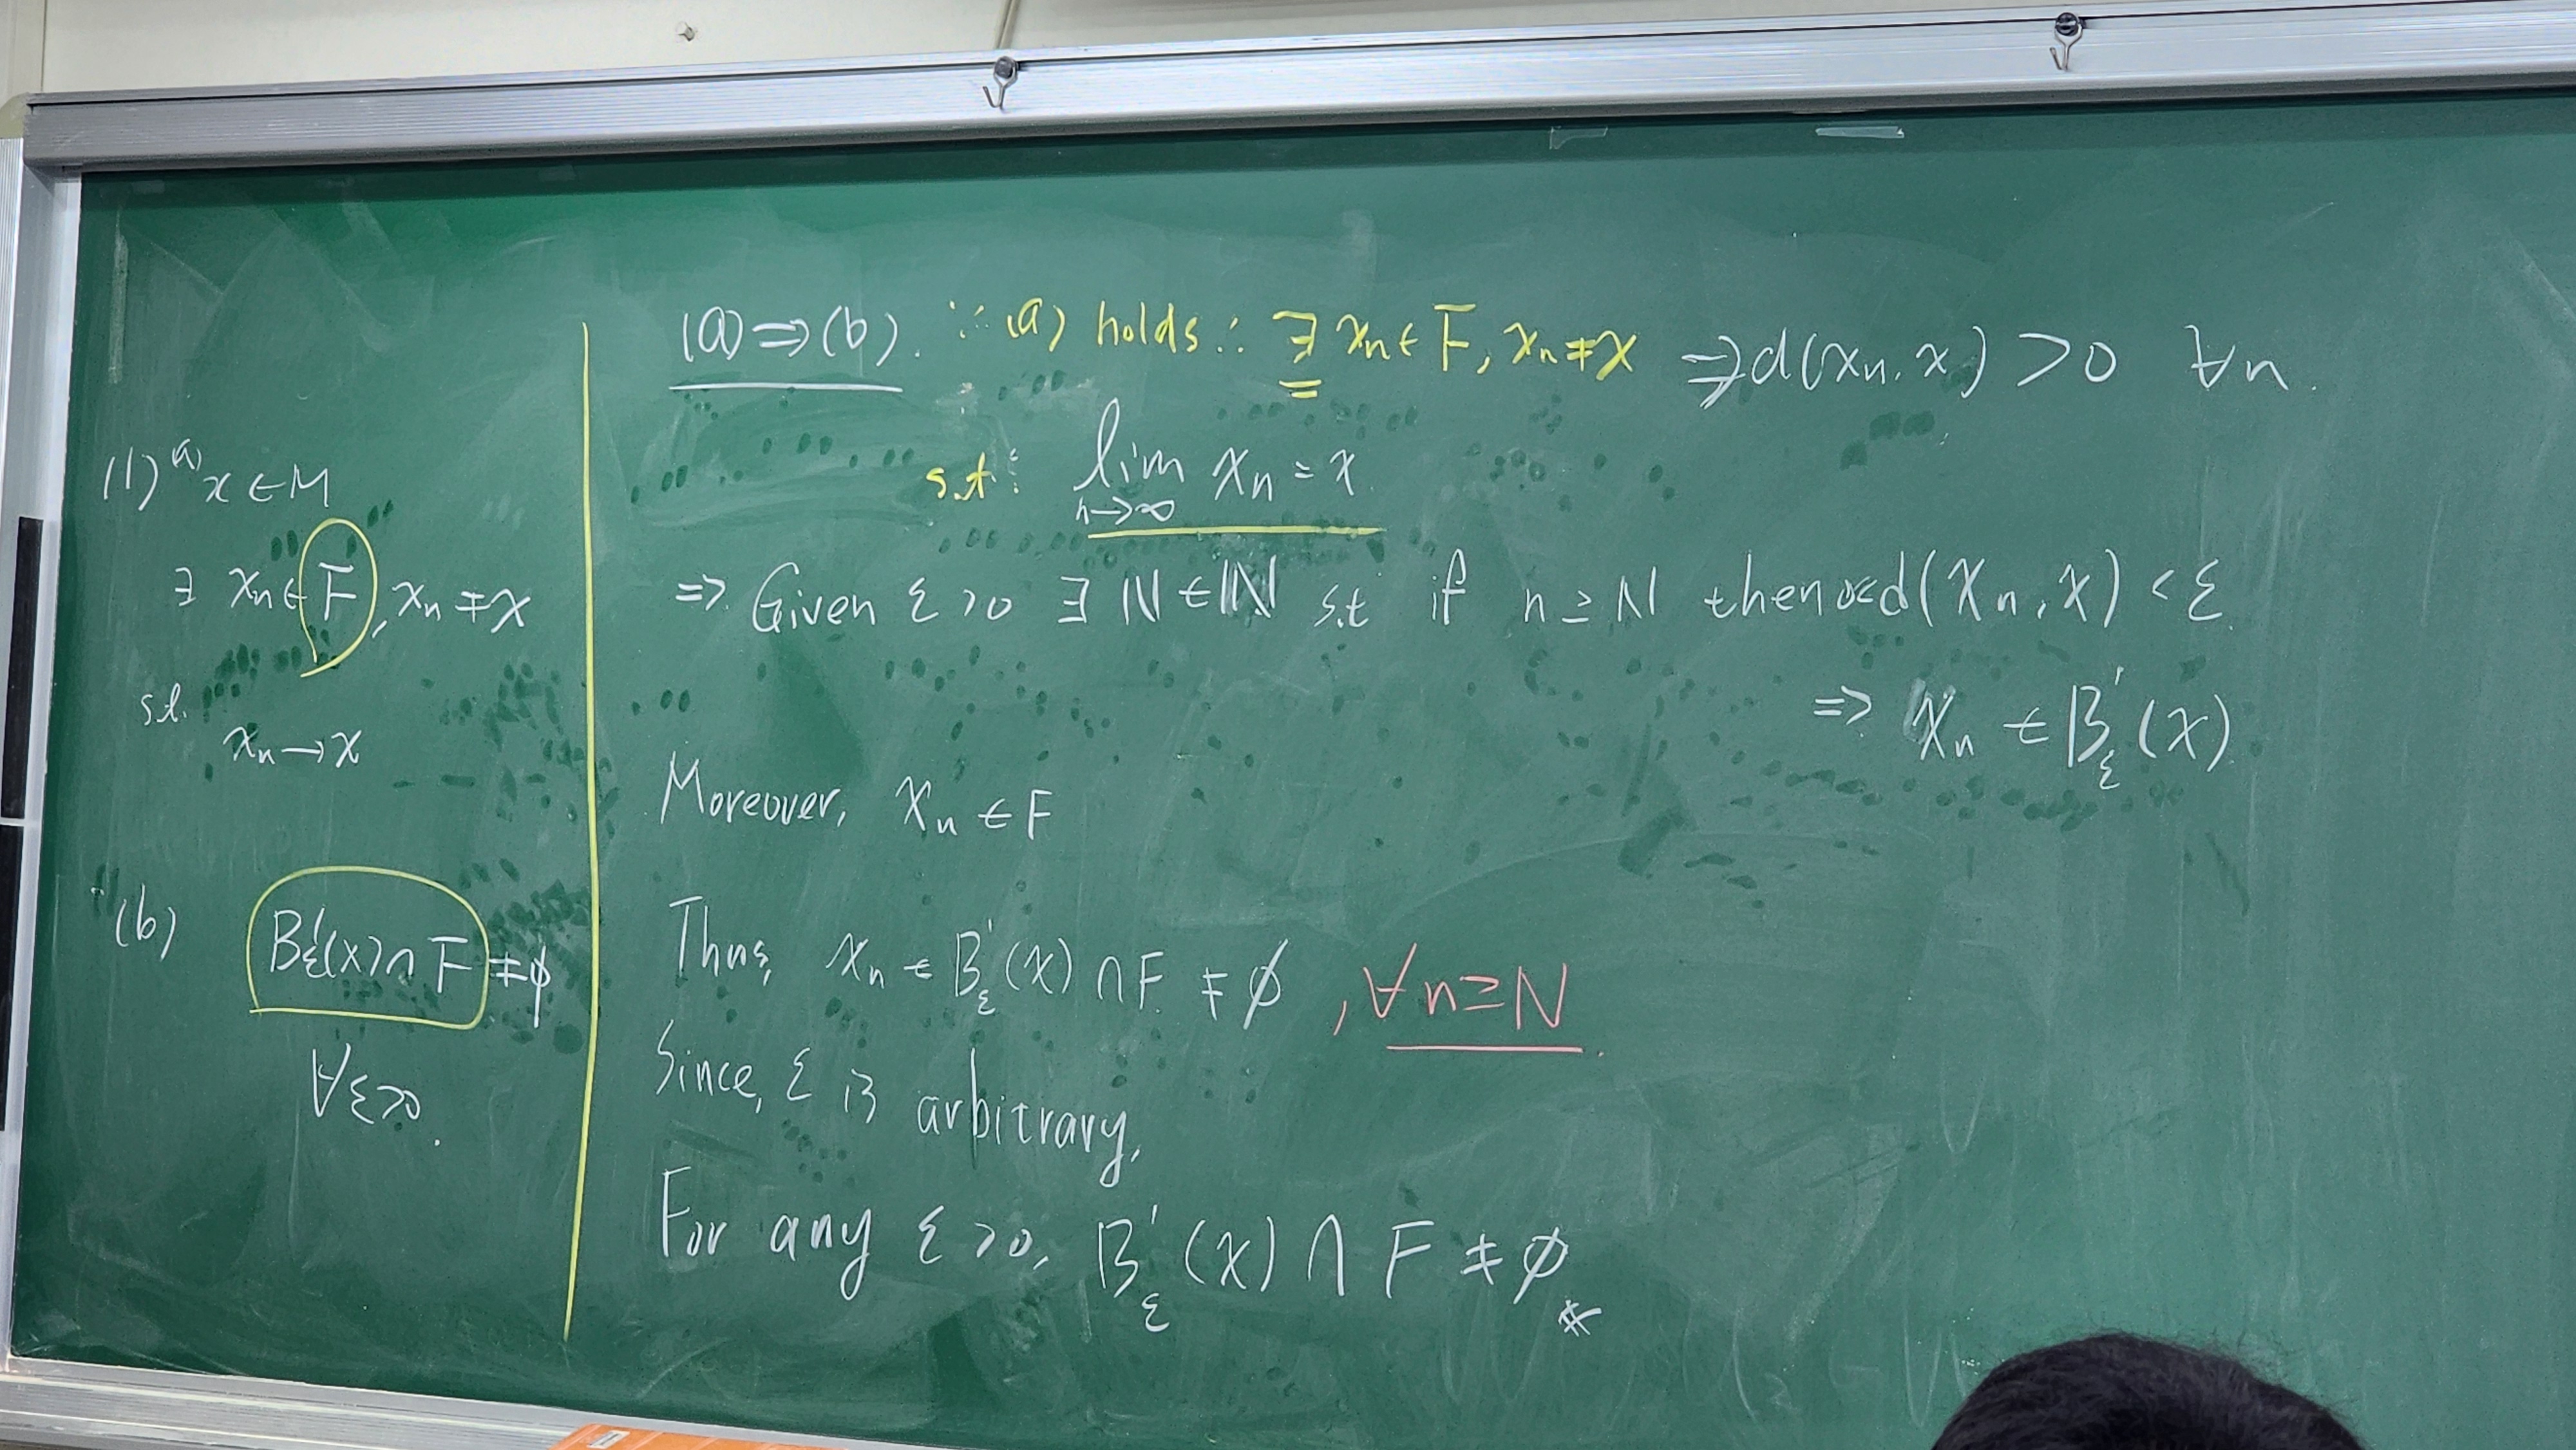 (1) (a) x ∈ M
∃ xn ∈ F, xn ≠ x
s.t.
xn → x
(b) B'ε(x) ∩ F ≠ ∅
∀ε>0.
(a) ⇒ (b). ∵ (a) holds ∴ ∃ xn ∈ F, xn ≠ x ⇒ d(xn, x) > 0 ∀n.
s.t. lim n→∞ xn = x.
⇒ Given ε > 0 ∃ N ∈ ℕ s.t if n ≥ N then 0<d(xn, x) < ε.
⇒ xn ∈ B'ε(x)
Moreover, xn ∈ F
Thus, xn ∈ B'ε(x) ∩ F ≠ ∅, ∀n≥N.
Since, ε is arbitrary,
For any ε > 0, B'ε(x) ∩ F ≠ ∅ #